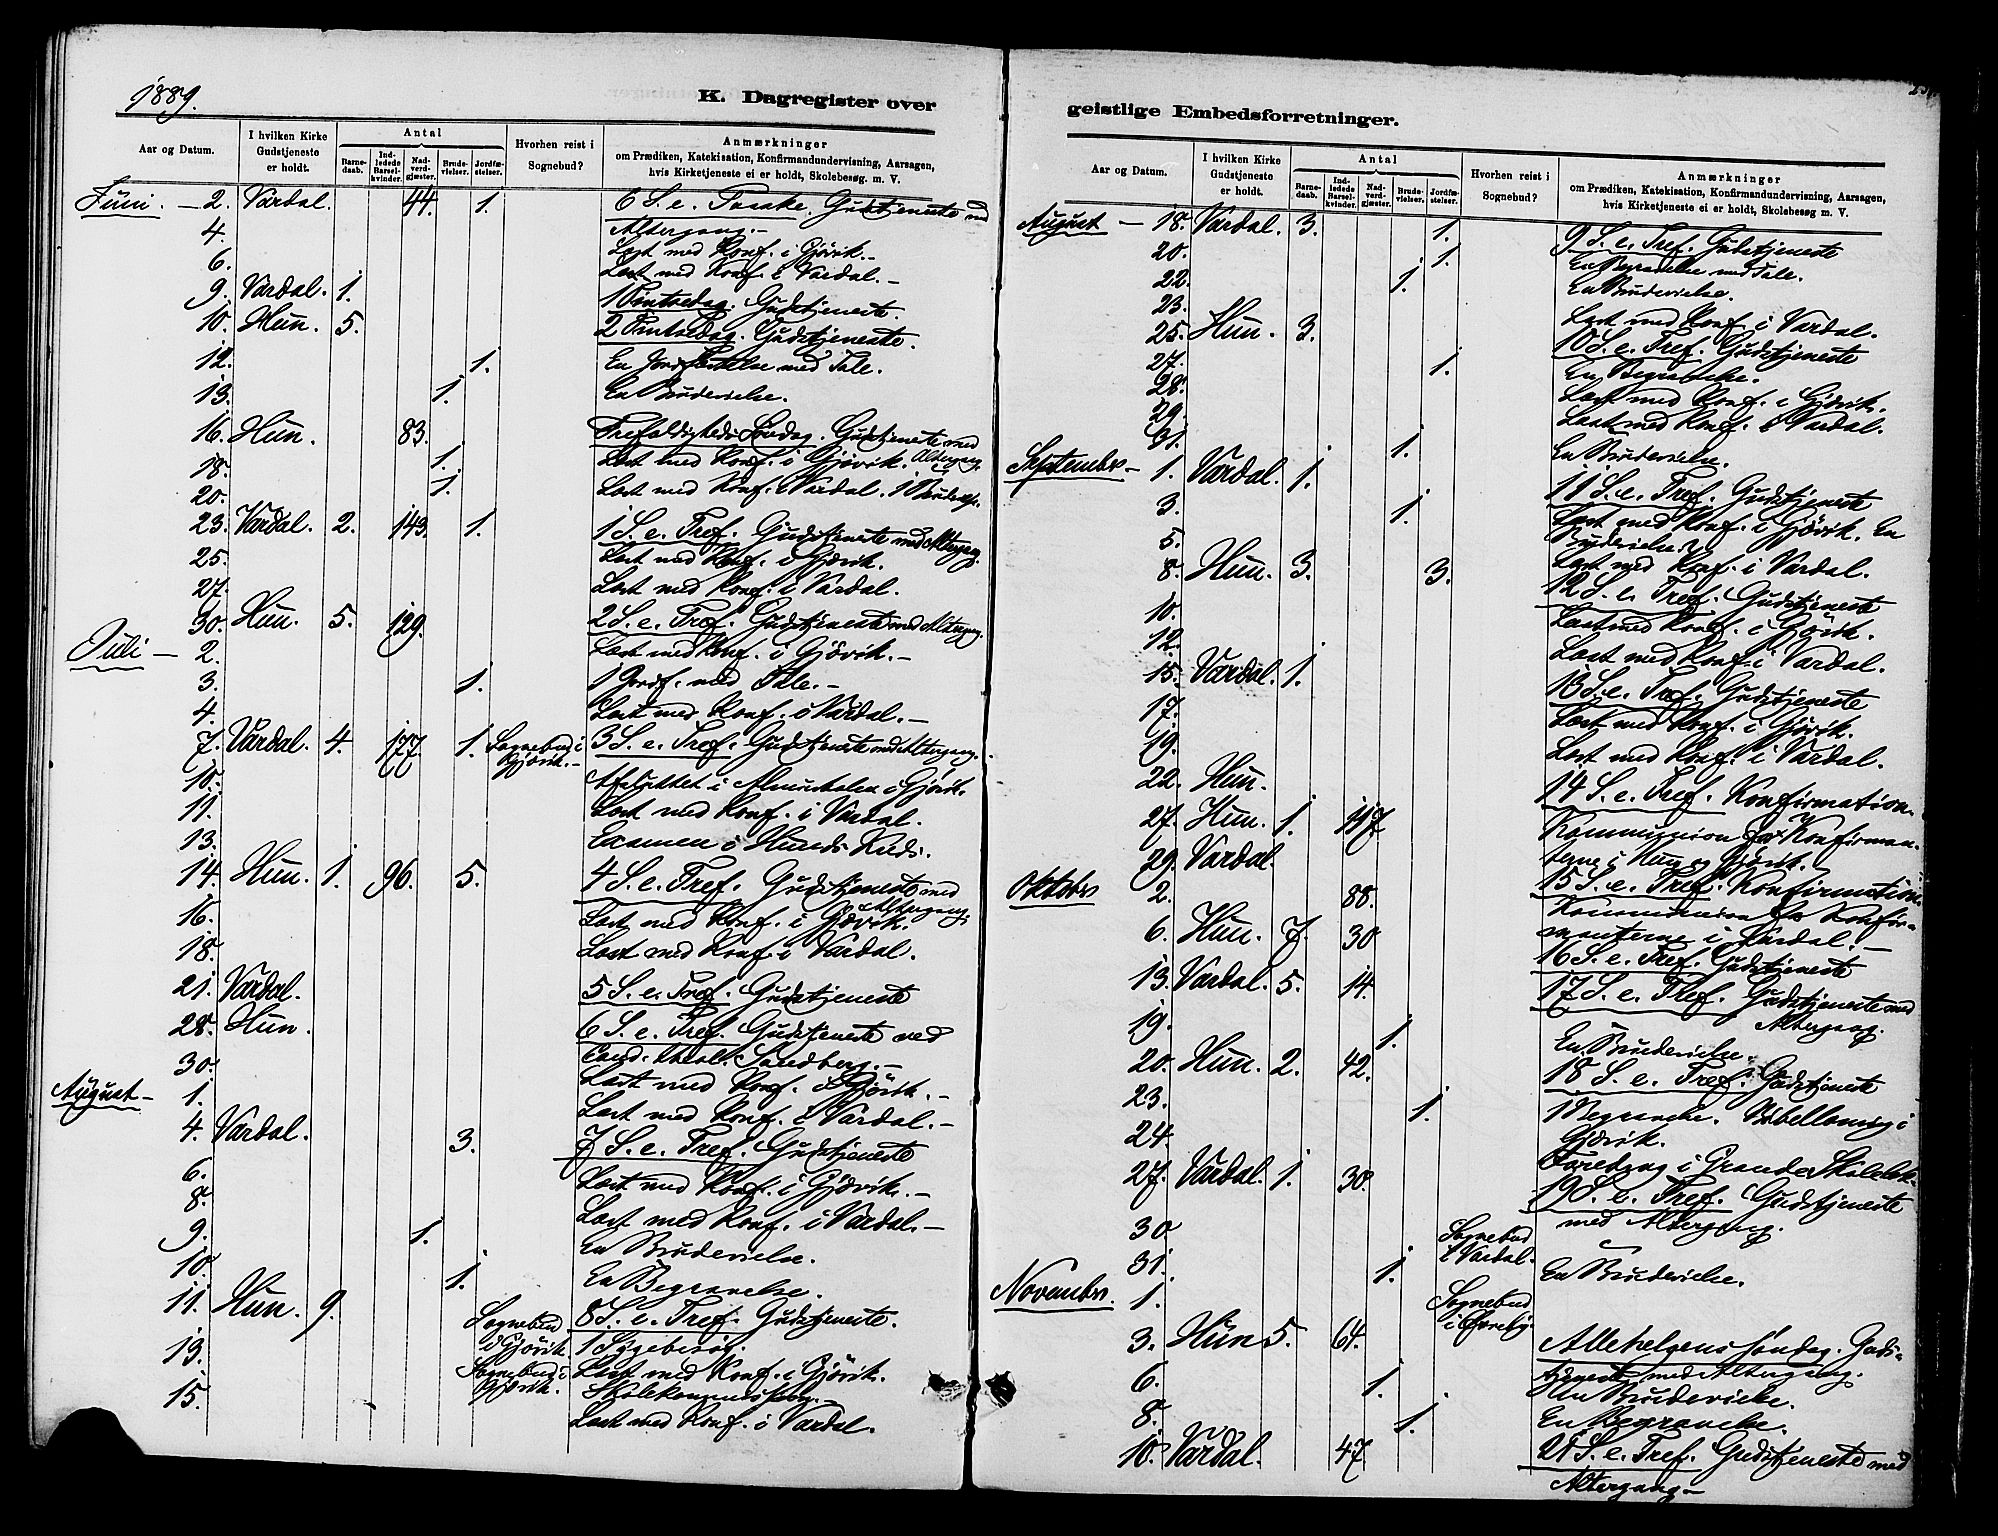 1889.
K. Dagregister over
Aar og Datum.
I hvilken Kirke Gudstjeneste er holdt.
Antal
Barnedaab.
Indledede Barselkvinder.
Nadverdgjæster.
Brudevielser.
Jordfæstelser.
Hvorhen reist i Sognebud?
Anmærkninger
om Prædiken, Katekisation, Konfirmandundervisning, Aarsagen,
hvis Kirketjeneste ei er holdt, Skolebesøg m. V.
Juni. — 2. Vardal. 44. 1. 6 S. e. Paaske. Gudstjeneste med
Altergang.—
4. Læst med Konf. i Gjövik.—
6. Læst med Konf. i Vardal.—
9. Vardal. 1. 1 Pintsedag. Gudstjeneste.
10. Hun. 5. 2 Pintsedag. Gudstjeneste.
12. 1. En Jordfæstelse med Tale.
13. 1. En Brudevielse.
16. Hun. 83. Trefoldigheds Søndag. Gudstjeneste med
Altergang.
18. 1. Læst med Konf. i Gjövik.
20. 1. Læst med Konf. i Vardal. 1 Brudevielse.
23. Vardal. 2. 143. 1. 1 S. e. Tref. Gudstjeneste med Altergang.
25. Læst med Konf. i Gjövik.
27. Læst med Konf. i Vardal.
30. Hun. 5. 129. 2 S. e. Tref. Gudstjeneste med Altergang.
Juli — 2. Læst med Konf. i Gjövik.—
3. 1. 1 Jordf. med Tale.—
4. Læst med Konf. i Vardal.—
7. Vardal. 4. 127. 1. Sognebud i Gjövik.— 3 S. e. Tref. Gudstjeneste med Altergang.
10. i Gjövik.
11. Læst med Konf. i Vardal.
13. Examen i Hunds Kreds.
14. Hun. 1. 96. 5. 4 S. e. Tref. Gudstjeneste med
Altergang.
16. Læst med Konf. i Gjövik.
18. Læst med Konf. i Vardal.
21. Vardal. 5 S. e. Tref. Gudstjeneste
28. Hun. 6 S. e. Tref. Gudstjeneste ved
Cand. theol. Sandberg.—
30. Læst med Konf. i Gjövik.—
August — 1. Læst med Konf. i Vardal.—
4. Vardal. 3. 7 S. e. Tref. Gudstjeneste
6. Læst med Konf. i Gjövik.—
8. Læst med Konf. i Vardal.—
9. 1. En Brudevielse.
10. 1. En Begravelse.
11. Hun. 9. Sognebud i Gjövik. 8 S. e. Tref. Gudstjeneste.
1 Sygebesøg.
13. Sognebud i Gjövik. Læst med Konf. i Gjövik.
15. Læst med Konf. i Vardal.
geistlige Embedsforretninger.
Aar og Datum.
I hvilken Kirke Gudstjeneste er holdt.
Antal
Barnedaab.
Indledede Barselkvinder.
Nadverdgjæster.
Brudevielser.
Jordfæstelser.
Hvorhen reist i Sognebud?
Anmærkninger
om Prædiken, Katekisation, Konfirmandundervisning, Aarsagen,
hvis Kirketjeneste ei er holdt, Skolebesøg m. V.
August — 18. Vardal. 3. 1. 9 S. e. Tref. Gudstjeneste
20. 1. En Begravelse med Tale.
22. 1. En Brudevielse.
23. Læst med Konf. i Vardal.
25. Hun. 3. 10 S. e. Tref. Gudstjeneste
27. 1. En Begravelse.
28. Læst med Konf. i Gjövik.
29. Læst med Konf. i Vardal.
31. 1. En Brudevielse.
September — 1. Vardal. 1. 11 S. e. Tref. Gudstjeneste
3. 1. Læst med Konf. i Gjövik. En
Brudevielse
5. Læst med Konf. i Vardal.
8. Hun. 3. 3. 12 S. e. Tref. Gudstjeneste
10. Læst med Konf. i Gjövik.
12. Læst med Konf. i Vardal.
15. Vardal. 1. 13 S. e. Tref. Gudstjeneste
17. Læst med Konf. i Gjövik.
19. Læst med Konf. i Vardal.
22. Hun. 14 S. e. Tref. Konfirmation.
27. Hun. 1. 117. Kommunion for Konfirman-
terne i Hun og Gjövik.
29. Vardal. 15 S. e. Tref. Konfirmation.
Oktober 2. 88. Kommunion for Konfir-
manterne i Vardal.—
6. Hun. 7. 30. 16 S. e. Tref. Gudstjeneste
13. Vardal. 5. 14. 17 S. e. Tref. Gudstjeneste med
Altergang.
19. 1. En Brudevielse.
20. Hun. 2. 42. 18 S. e. Tref. Gudstjeneste
23. 1. 1 Begravelse. i
Gjövik.
24. Foredrag i
27. Vardal. 1. 30. 19 S. e. Tref. Gudstjeneste
med Altergang.
30 Sognebud i Vardal.
31. 1. En Brudevielse.
November. 1. Sognebud i
3. Hun 5. 64. Allehelgens søndag. Guds-
tjeneste med Altergang.
6. 1. En Brudevielse.
8. 1. En Begravelse.
10. Vardal. 47. 21 S. e. Tref. Gudstjeneste med
Altergang—